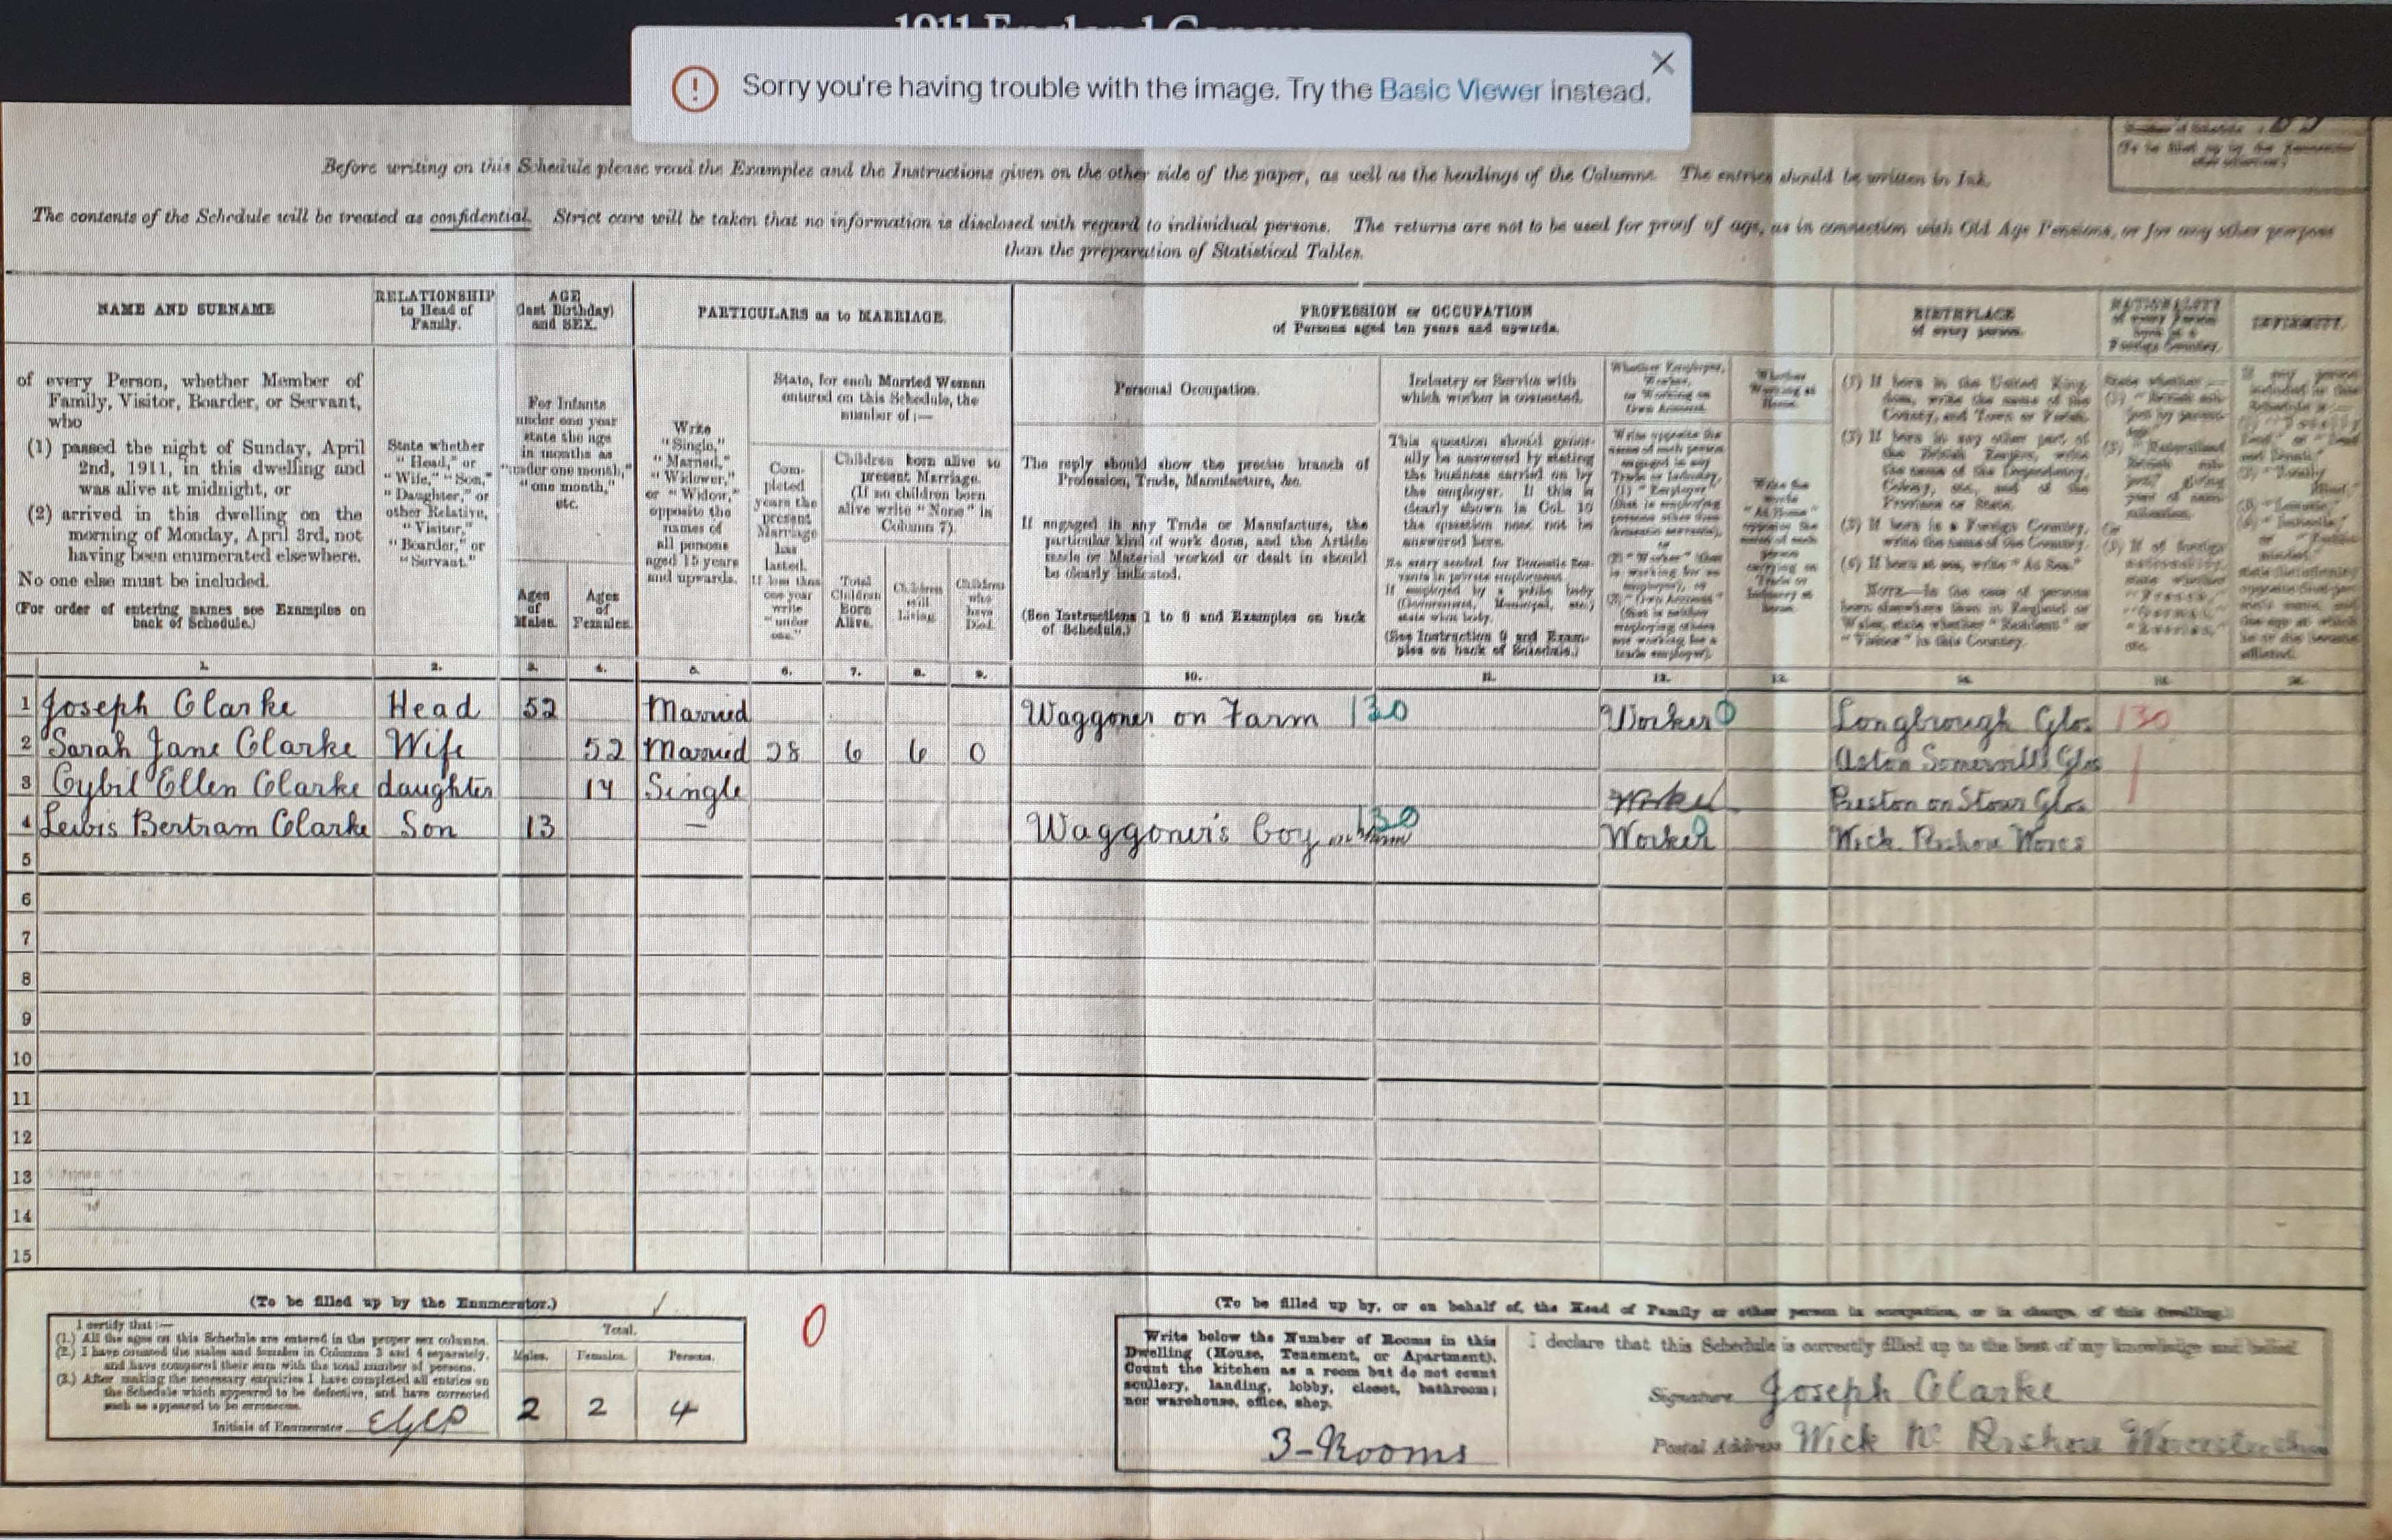 1911 England Census
Sorry you're having trouble with the image. Try the Basic Viewer instead.
Before writing on this Schedule please read the Examples and the Instructions given on the other side of the paper, as well as the headings of the Columns. The entries should be written in Ink.
The contents of the Schedule will be treated as confidential. Strict care will be taken that no information is disclosed with regard to individual persons. The returns are not to be used for proof of age, as in connection with Old Age Pensions, or for any other purpose
than the preparation of Statistical Tables.
NAME AND SURNAME
RELATIONSHIP
to Head of
Family.
AGE
(last Birthday)
and SEX.
PARTICULARS as to MARRIAGE.
PROFESSION or OCCUPATION
of Persons aged ten years and upwards.
BIRTHPLACE
of every person.
NATIONALITY
of every Person
born in a
Foreign Country.
INFIRMITY.
of every Person, whether Member of
Family, Visitor, Boarder, or Servant,
who
(1) passed the night of Sunday, April
2nd, 1911, in this dwelling and
was alive at midnight, or
(2) arrived in this dwelling on the
morning of Monday, April 3rd, not
having been enumerated elsewhere.
No one else must be included.
(For order of entering names see Examples on
back of Schedule.)
State whether
"Head," or
"Wife," "Son,"
"Daughter," or
other Relative,
"Visitor,"
"Boarder," or
"Servant."
For Infants
under one year
state the age
in months as
"under one month,"
"one month,"
etc.
Ages
of
Males.
Ages
of
Females.
Write
"Single,"
"Married,"
"Widower,"
or "Widow,"
opposite the
names of
all persons
aged 15 years
and upwards.
State, for each Married Woman
entered on this Schedule, the
number of :—
Com-
pleted
years the
present
Marriage
has
lasted.
If less than
one year
write
"under
one."
Children born alive to
present Marriage.
(If no children born
alive write "None" in
Column 7).
Total
Children
Born
Alive.
Children
still
Living.
Children
who
have
Died.
Personal Occupation.
The reply should show the precise branch of
Profession, Trade, Manufacture, &c.
If engaged in any Trade or Manufacture, the
particular kind of work done, and the Article
made or Material worked or dealt in should
be clearly indicated.
(See Instructions 1 to 8 and Examples on back
of Schedule.)
Industry or Service with
which worker is connected.
This question should gener-
ally be answered by stating
the business carried on by
the employer. If this is
clearly shown in Col. 10
the question need not be
answered here.
No entry needed for Domestic Ser-
vants in private employment.
If employed by a public body
(Government, Municipal, etc.)
state what body.
(See Instruction 9 and Exam-
ples on back of Schedule.)
Whether Employer,
Worker,
or Working on
Own Account.
Whether
Working at
Home.
(1) If born in the United King-
dom, write the name of the
County, and Town or Parish.
(2) If born in any other part of
the British Empire, write
the name of the Dependency,
Colony, etc., and of the
Province or State.
(3) If born in a Foreign Country,
write the name of the Country.
(4) If born at sea, write "At Sea."
1. 2. 3. 4. 5. 6. 7. 8. 9. 10. 11. 12. 13. 14.
1 Joseph Clarke Head 52 Married Waggoner on Farm 130 Worker Longbrough Glos 130
2 Sarah Jane Clarke Wife 52 Married 28 6 6 0 Aston Somerville Glos
3 Cybil Ellen Clarke daughter 14 Single Worker Preston on Stour Glos
4 Lewis Bertram Clarke Son 13 — Waggoner's boy on farm 130 Worker Wick Pershore Worcs
5
6
7
8
9
10
11
12
13
14
15
(To be filled up by the Enumerator.)
I certify that :—
(1.) All the ages on this Schedule are entered in the proper sex columns.
(2.) I have counted the males and females in Columns 3 and 4 separately,
and have compared their sum with the total number of persons.
(3.) After making the necessary enquiries I have completed all entries on
the Schedule which appeared to be defective, and have corrected
such as appeared to be erroneous.
Initials of Enumerator
Total.
Males. Females. Persons.
2 2 4
0
(To be filled up by, or on behalf of, the Head of Family or other person in occupation, or in charge, of this dwelling.)
Write below the Number of Rooms in this
Dwelling (House, Tenement, or Apartment).
Count the kitchen as a room but do not count
scullery, landing, lobby, closet, bathroom;
nor warehouse, office, shop.
3-Rooms
I declare that this Schedule is correctly filled up to the best of my knowledge and belief.
Signature Joseph Clarke
Postal Address Wick Nr Pershore Worcestershire